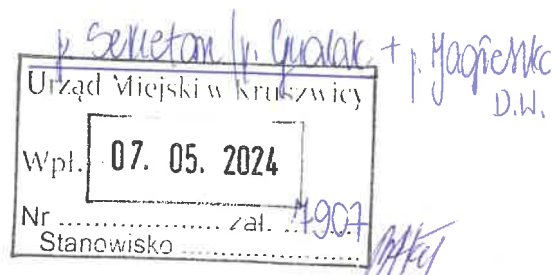 p. Sekretarz / p. Gualak + p. Jagiełko
D.W.
Urząd Miejski w Kruszwicy
Wpł. 07. 05. 2024
Nr .................. zał. ..7907
Stanowisko ..................